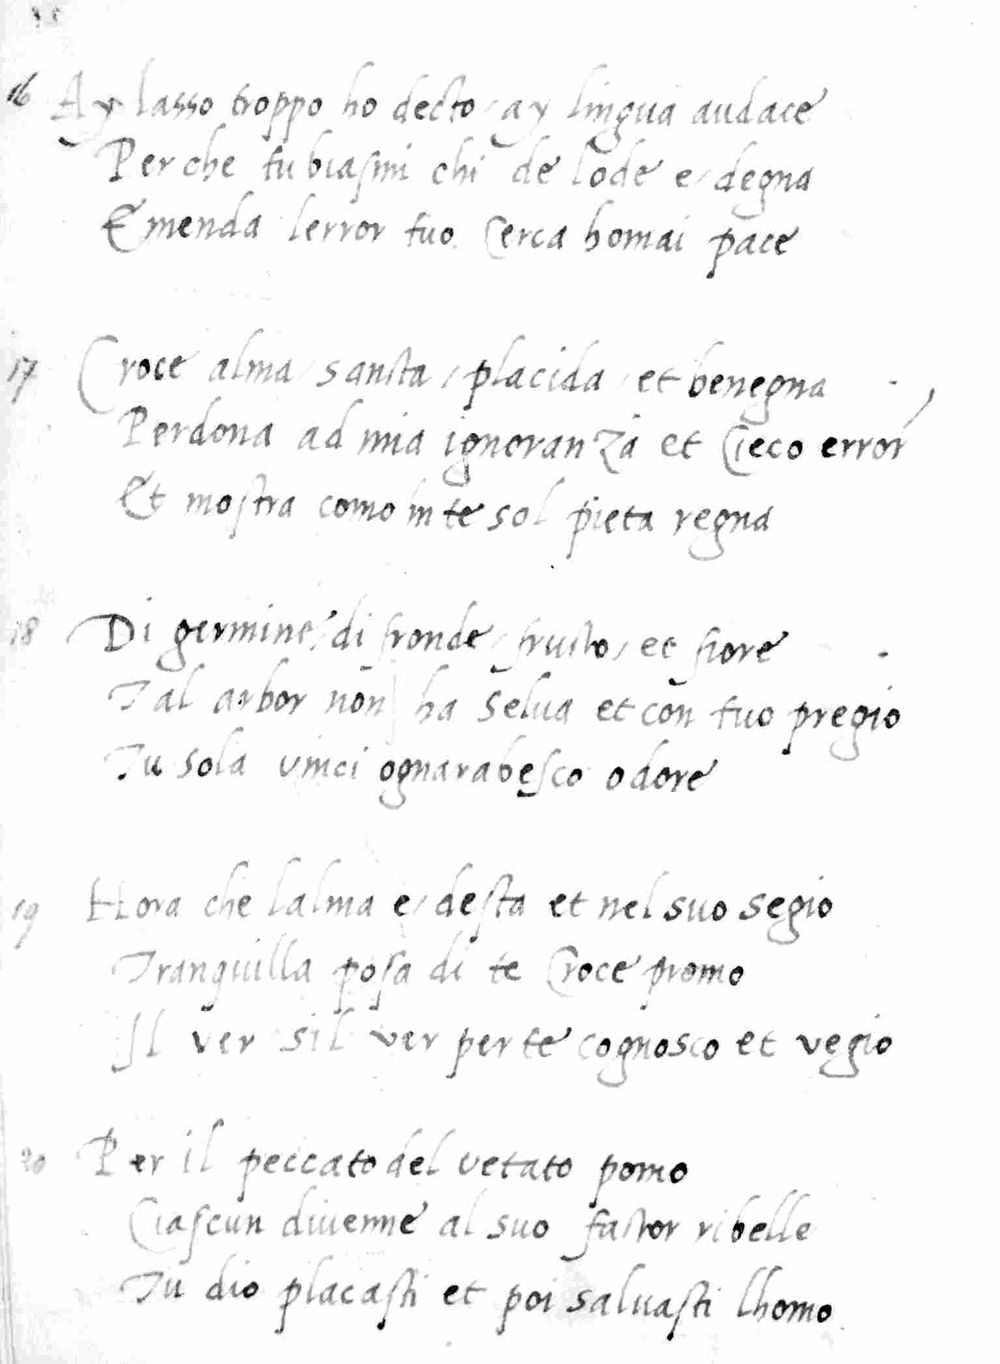 16 Ay lasso troppo ho decto / ay lingua audace
Perche tu biasmi chi de lode e / degna
Emenda lerror tuo cerca homai pace
17 Croce alma / sancta / placida / et benegna
Perdona ad mia ignoranza et Cieco error
Et mostra como in te sol pieta regna
18 Di germine / di fronde / fructo / et fiore
Tal arbor non ha selva et con tuo pregio
Tu sola vinci ognarabesco odore
19 Hora che lalma e / desta et nel suo segio
Tranquilla posa di te Croce promo
Il ver sil ver per te cognosco et vegio
20 Per il peccato del vetato pomo
Ciascun divenne al suo factor ribelle
Tu dio placasti et poi salvasti lhomo